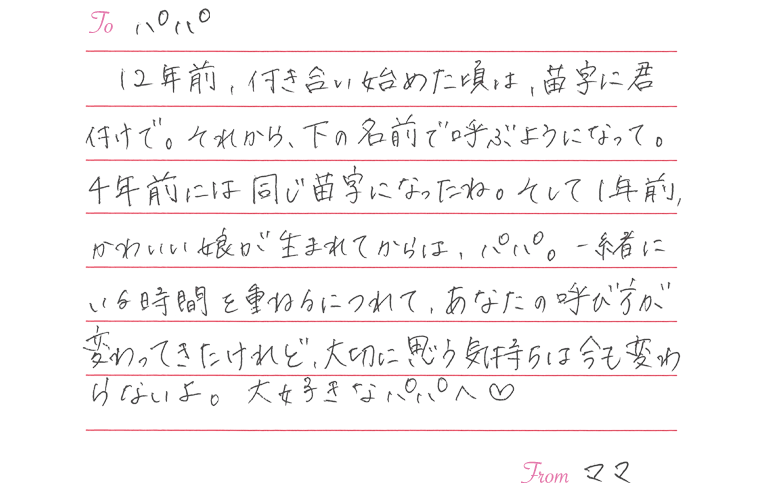 To パパ
12年前、付き合い始めた頃は、苗字に君
付けで。それから、下の名前で呼ぶようになって。
4年前には同じ苗字になったね。そして1年前、
かわいい娘が生まれてからは、パパ。一緒に
いる時間を重ねるにつれて、あなたの呼び方が
変わってきたけれど、大切に思う気持ちは今も変わ
らないよ。大好きなパパへ♡
From ママ